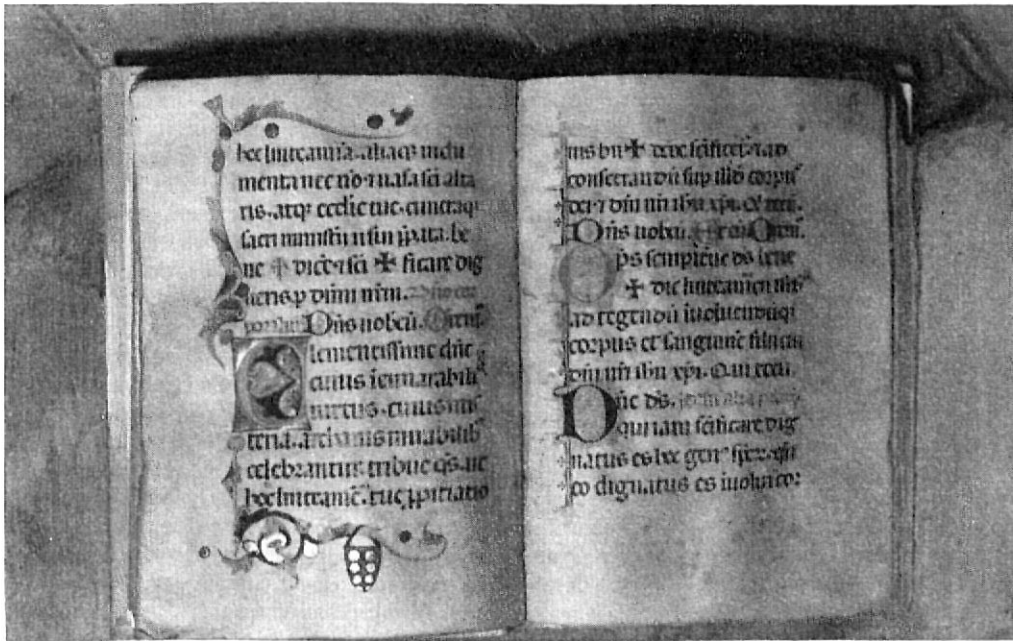 hec linteamīa. aliaqȝ indu
menta nec nō ⁊ uasa sc̄i alta
ris. atqȝ ecclīe tue. cunctaqȝ
sacri ministīi usui
ne ✠ dicē ⁊ sc̄i ✠ ficare dig
neris. p dn̄m nr̄m.
Dn̄s uobcū. Orem̄.
Clementissime dn̄e
cuius
uirtus. cuius mis
teria. archanis mirabilib
celebrantur tribue qs̄. ut
hec linteamē. tue ꝓpitiatio
nis bn̄ ✠ sc̄ificeī. ad
consecrandū sup illud corpus
dei ⁊ dn̄i nr̄i ihu xp̄i.
Dn̄s uobcū. Orem̄.
Op̄s sempit̄ne ds̄ bene
✠ dic linteamen
ad tegendū inuoluendūqȝ
corpus et sanguinē filii tui
dn̄i nr̄i ihu xp̄i. Qui tecū.
Dn̄e ds̄.
qui iam sc̄ificare dig
natus es hec
co dignatus es inuolui cor